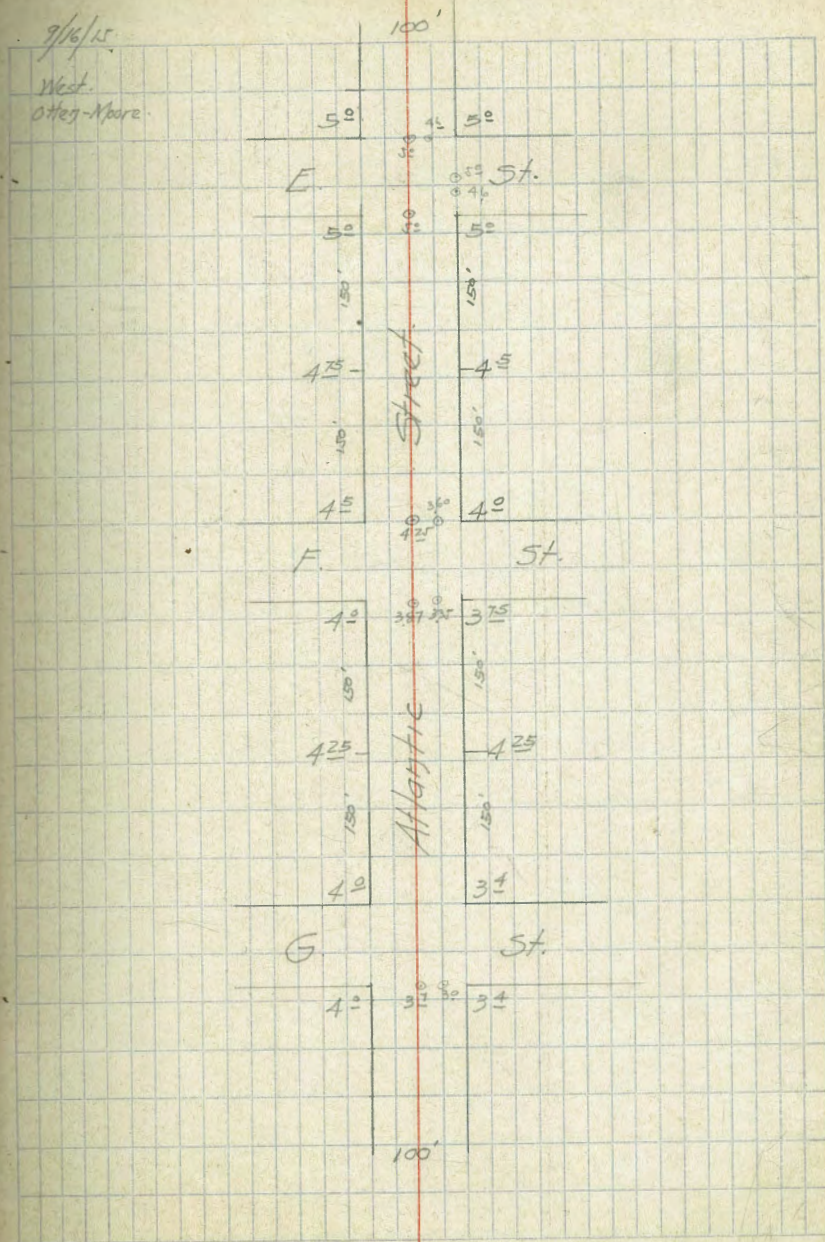 9/16/15
West.
Otten-Moore
100'
5 0
4 5
5 0
5 0
E. St.
4 6
5 0
5 0
5 0
150'
150'
4 75
4 5
Street.
150'
150'
4 5
3 60
4 0
4 25
F. St.
4 0
3 87
3 35
3 75
150'
150'
4 25
4 25
Atlantic
150'
150'
4 0
3 4
G. St.
4 0
3 7
3 0
3 4
100'